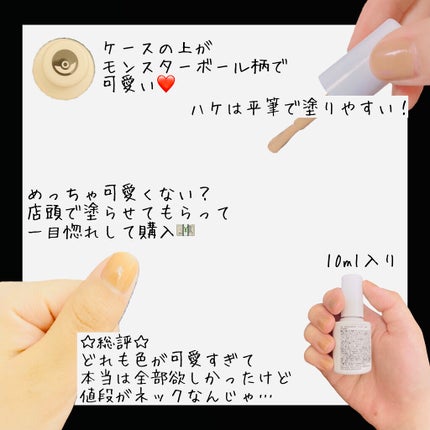 ケースの上が
モンスターボール柄で
可愛い❤️
ハケは平筆で塗りやすい！
めっちゃ可愛くない？
店頭で塗らせてもらって
一目惚れして購入💵
10ml入り
☆総評☆
どれも色が可愛すぎて
本当は全部欲しかったけど
値段がネックなんじゃ…